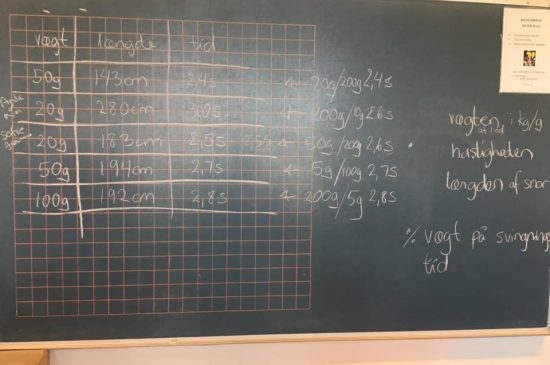 vægt længde tid
50g 143cm 2,4s ← 20g/200g 2,4s
20g 280cm 3,0s ← 200g/10g 2.6s
20g 183cm 2,5s ← 50g/20g 2,6s
50g 194cm 2,7s ← 5g/100g 2,7s
100g 192cm 2,8s ← 200g/5g 2,8s
vægten i kg/g
af lod
hastigheden
længden af snor
% vægt på svingnings
tid